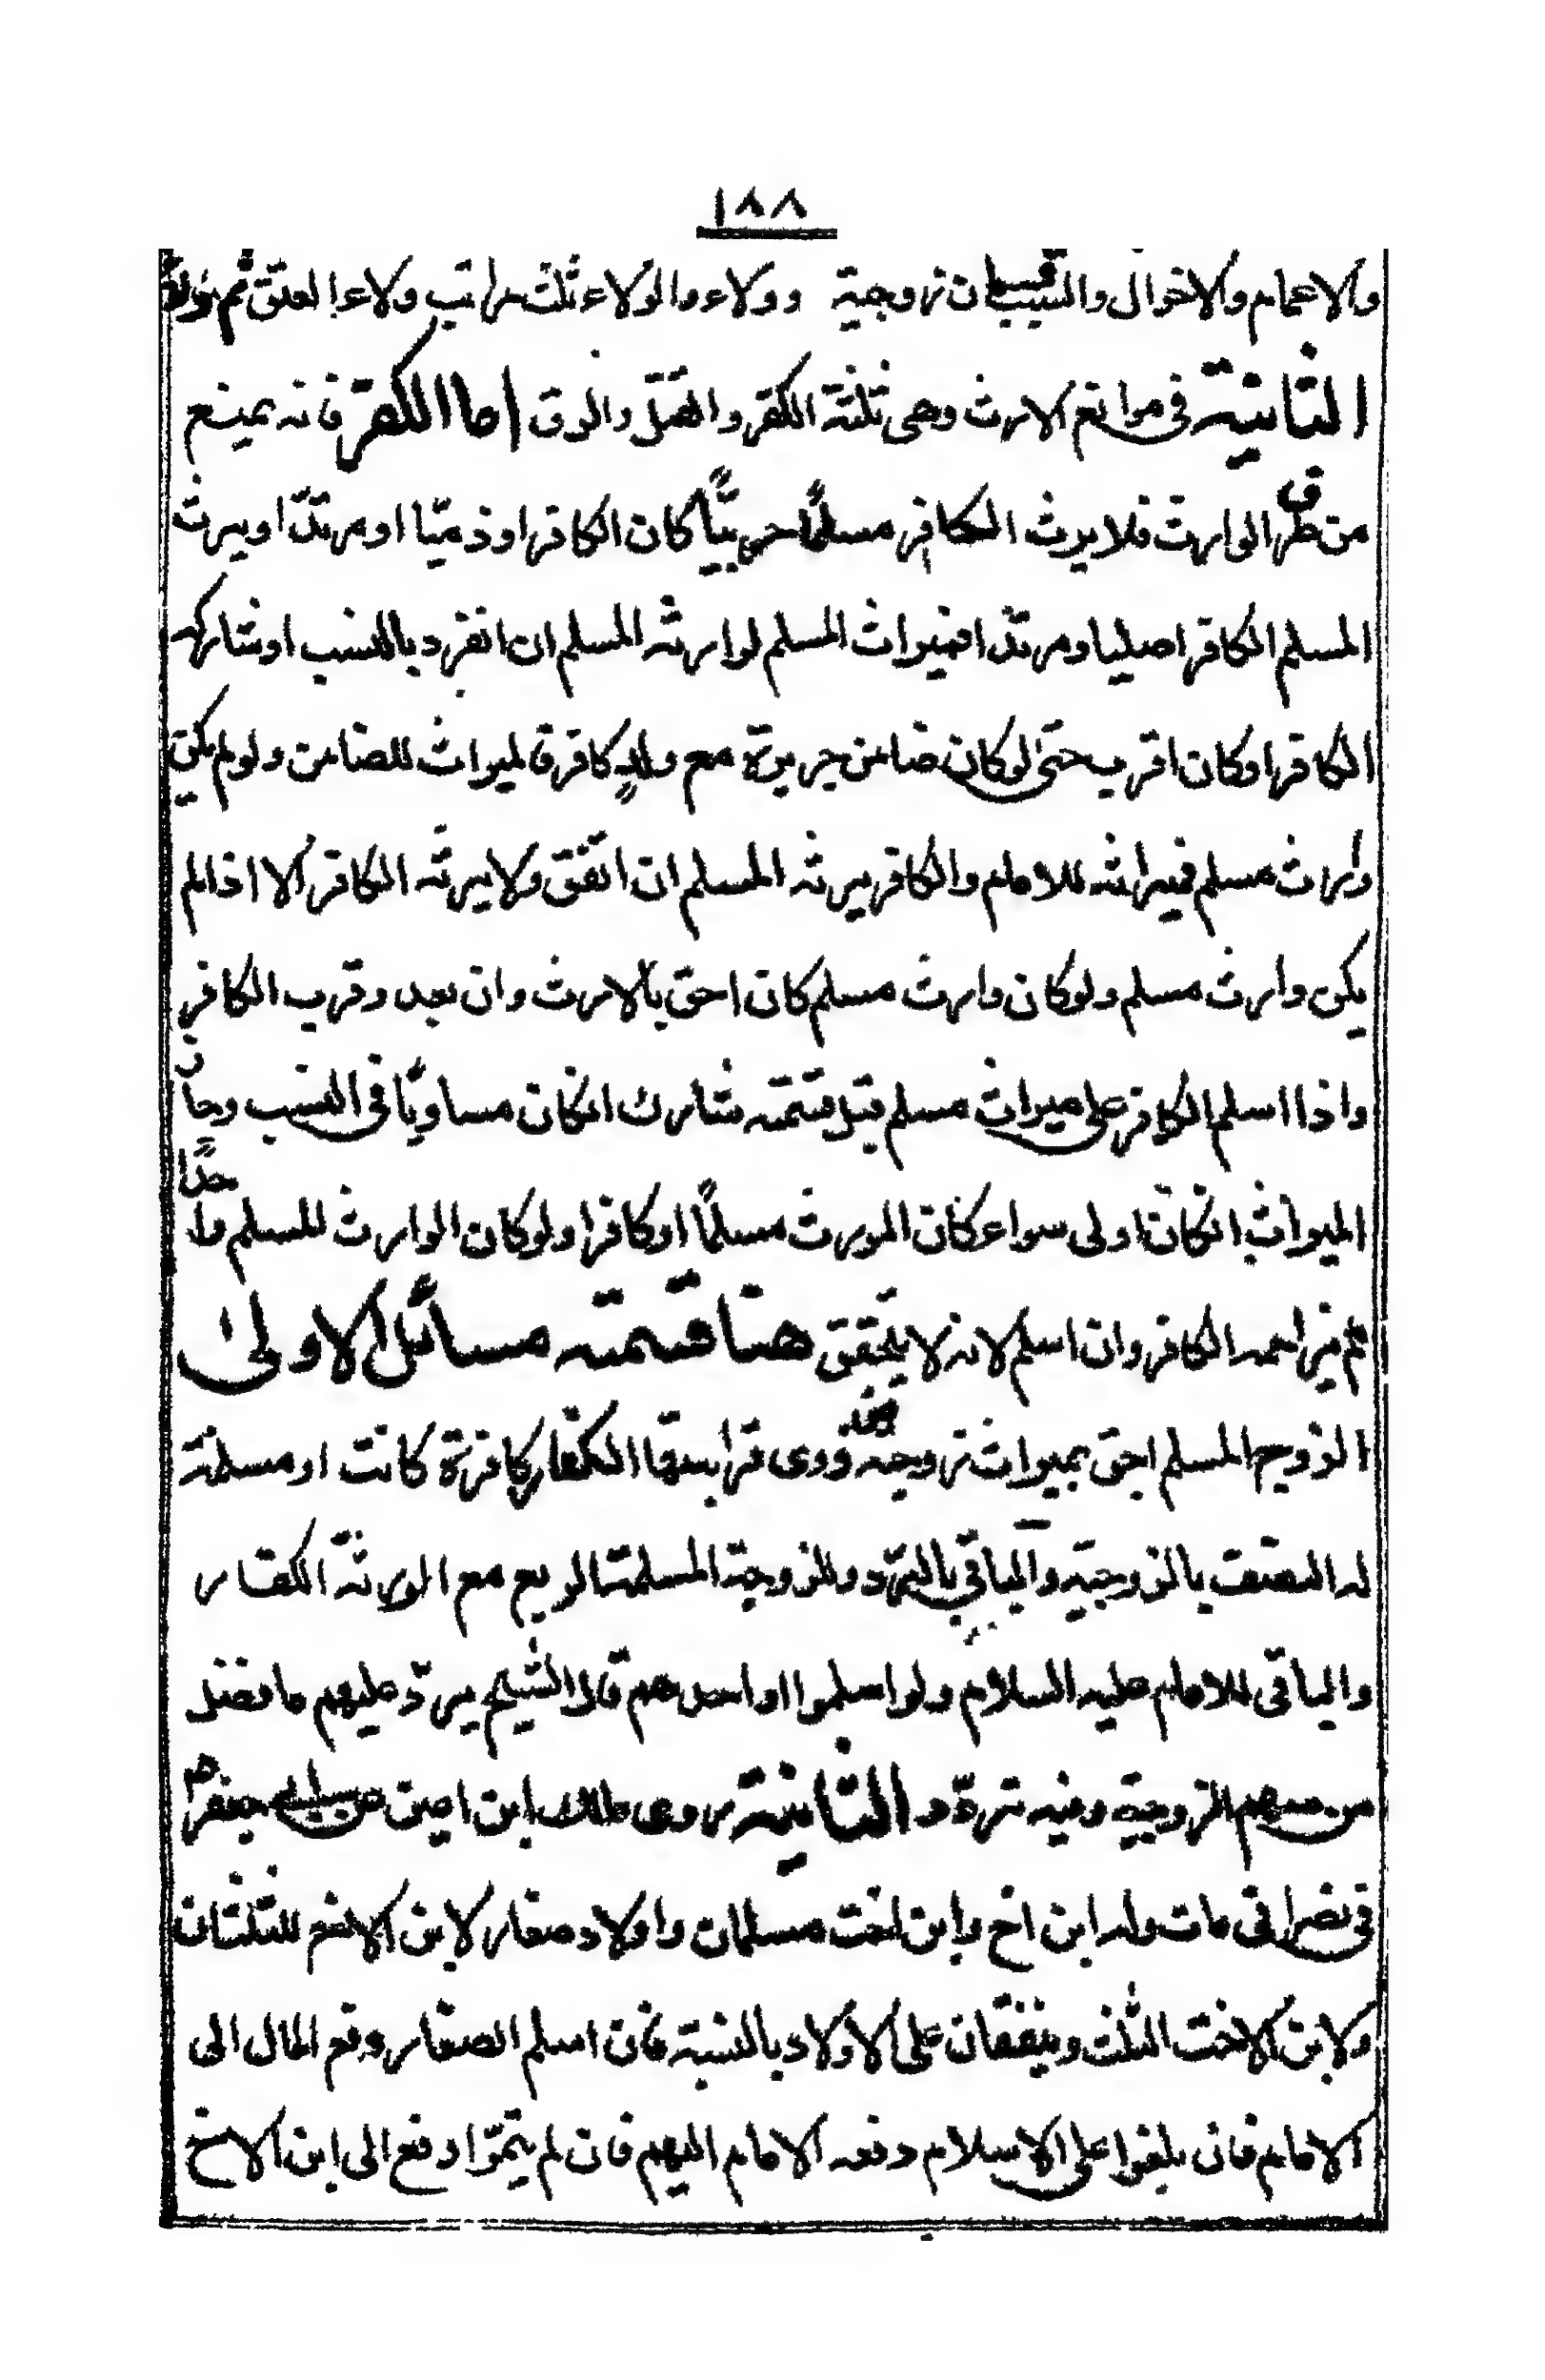 ١٨٨
والاعمام والاخوال والسبب قسمان زوجية و ولاء والولاء ثلث مراتب ولاء العتق ثم
الثانية فى موانع الارث وهى ثلثة الكفر والقتل والرق اما الكفر فانه يمنع
من طرف الوارث فلا يرث الكافر مسلمًا حربيًّا كان الكافر او ذميّا او مرتدّا ويرث
المسلم الكافر اصليا ومرتدّا فميراث المسلم لوارثه المسلم ان انفرد بالنسب او شاركه
الكافر او كان اقرب حتى لو كان ضامن جريرة مع ولدٍ كافر فالميراث للضامن ولو لم يكن
وارث مسلم فميراثه للامام والكافر يرثه المسلم ان اتفق ولا يرثه الكافر الا اذا لم
يكن وارث مسلم ولو كان وارث مسلم كان احق بالارث وان بعد وقرب الكافر
واذا اسلم الكافر على ميراث مسلم قبل قسمته شارك انكان مساويًا فى النسب وحاز
الميراث انكان اولى سواء كان المورث مسلمًا او كافرا ولو كان الوارث المسلم واحدًا
لم يزاحمه الكافر وان اسلم لانه لا يتحقق هنا قسمته مسائل الاولىٰ
الزوج المسلم احق بميراث زوجته من ذوى قرابتها الكفار كافرة كانت او مسلمة
له النصف بالزوجية والباقى بالرّد وللزوجة المسلمة الربع مع الورثة الكفار
والباقى للامام عليه السلام ولو اسلموا او احدهم قال الشيخ يردّ عليهم ما فضل
من سهم الزوجية وفيه تردّد الثانية روى مالك ابن اعين عن ابى جعفر ع
فى نصرانى مات وله ابن اخ وابن اخت مسلمان واولاد صغار لابن الاخ الثلثان
ولابن الاخت الثلث وينفقان على الاولاد بالنسبة فان اسلم الصغار دفع المال الى
الامام فان بلغوا على الاسلام دفعه الامام اليهم فان لم يتمّوا دفع الى ابن الاخ